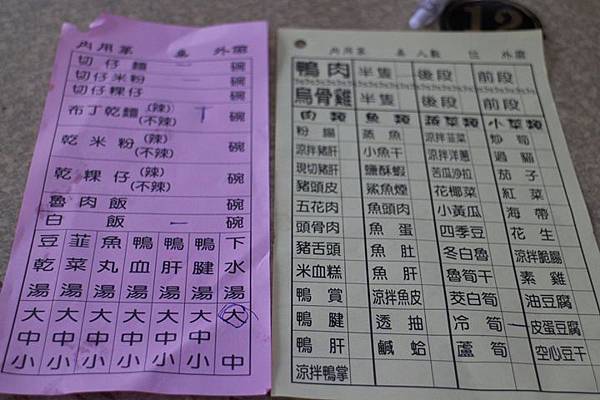 內用單 桌 外帶
切仔麵 一 碗
切仔米粉 碗
切仔粿仔
布丁乾麵 (辣) (不辣) 丅 碗
乾米粉 (辣) (不辣) 碗
乾粿仔 (辣) (不辣) 碗
魯肉飯 碗
白飯 一 碗
豆乾湯 大中小
韮菜湯 大中小
魚丸湯 大中小
鴨血湯 大中小
鴨肝湯 大中小
鴨腱湯 大中小
下水湯 大中
12
內用單 桌 人數 位 外帶
鴨肉 半隻 後段 前段
烏骨雞 半隻 後段 前段
肉類 魚類 蔬菜類 小菜類
粉腸 蒸魚 涼拌韮菜 炒筍
涼拌豬肝 小魚干 涼拌洋蔥 過貓
現切豬肝 鹽酥蝦 苦瓜沙拉 茄子
豬頭皮 鯊魚煙 花椰菜 紅菜
五花肉 魚頭肉 小黃瓜 海帶
頭骨肉 魚蛋 四季豆 花生
豬舌頭 魚肚 冬白魯 涼拌脆腸
米血糕 魚肝 魯筍干 素雞
鴨賞 涼拌魚皮 茭白筍 油豆腐
鴨腱 透抽 冷筍 一 皮蛋豆腐
鴨肝 鹹蛤 蘆筍 空心豆干
涼拌鴨掌